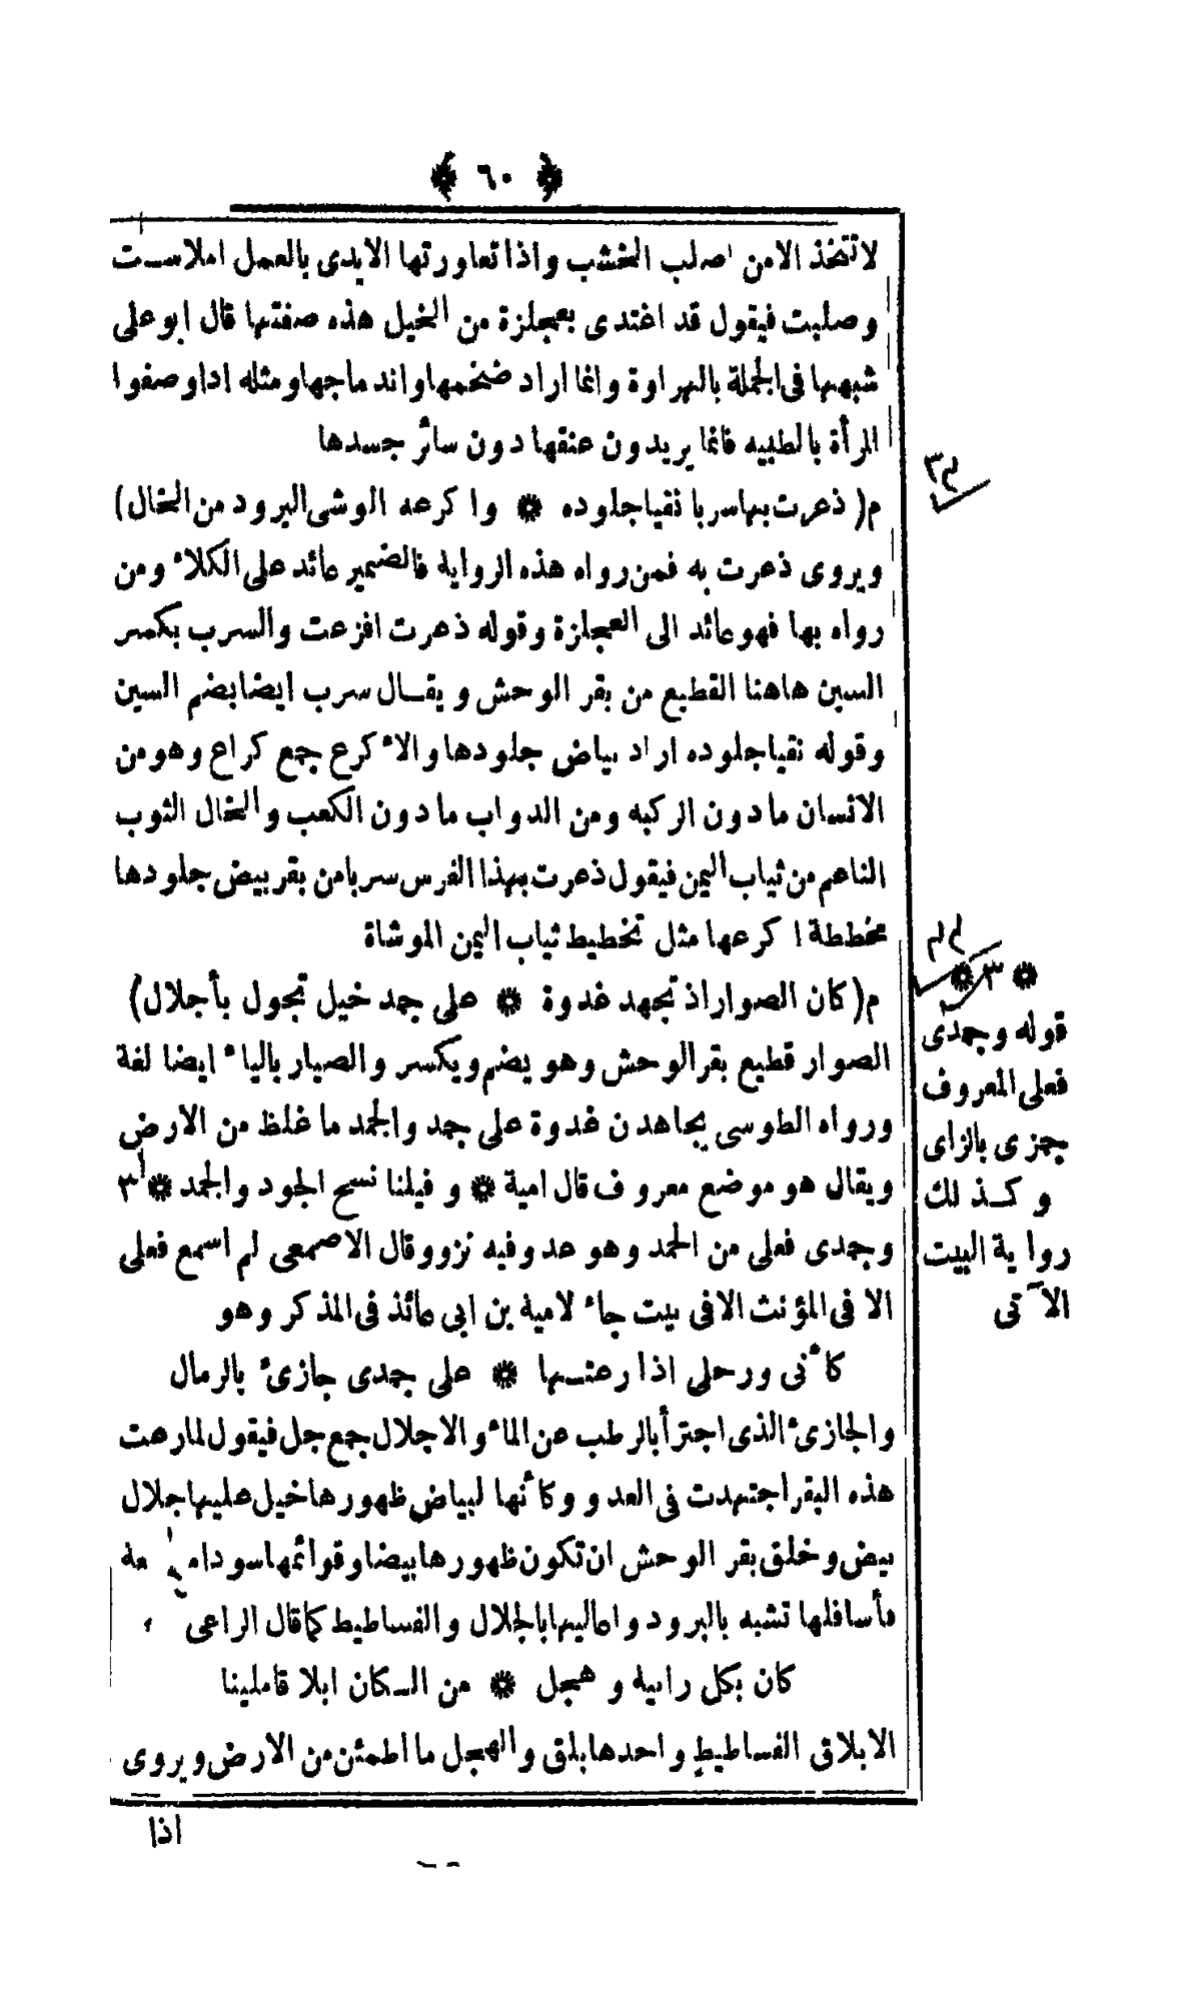 ﴿ ٦٠ ﴾
لا تتخذ الا من اصلب الخشب واذا تعاورتها الايدى بالعمل املاست
وصلبت فيقول قد اغتدى بعجلزة من الخيل هذه صفتها قال ابو على
شبهها فى الجملة بالهراوة وانما اراد ضخمها واندماجها ومثله اداوصفوا
المرأة بالظبيه فانما يريدون عنقها دون سائر جسدها
م( ذعرت بها سربا نقيا جلوده * وا كرعه الوشى البرود من الخال)
ويروى ذعرت به فمن رواه هذه الرواية فالضمير عائد على الكلاء ومن
رواه بها فهو عائد الى العجلزة وقوله ذعرت افزعت والسرب بكسر
السين هاهنا القطيع من بقر الوحش ويقال سرب ايضا بضم السين
وقوله نقيا جلوده اراد بياض جلودها والاء كرع جمع كراع وهو من
الانسان مادون الركبه ومن الدواب مادون الكعب والخال الثوب
الناعم من ثياب اليمن فيقول ذعرت بهذا الفرس سربا من بقر بيض جلودها
مخططة ا كرعها مثل تخطيط ثياب اليمن الموشاة
م( كان الصوار اذ تجهد غدوة * على جمد خيل تجول بأجلال)
الصوار قطيع بقر الوحش وهو يضم ويكسر والصيار بالياء ايضا لغة
ورواه الطوسى يجاهدن غدوة على جمد والجمد ما غلظ من الارض
ويقال هو موضع معروف قال امية * و قبلنا سبح الجود والجمد * ٣
وجمدى فعلى من الجمد وهو عد وفيه نزو وقال الاصمعى لم اسمع فعلى
الا فى المؤنث الا فى بيت جاء لامية بن ابى عائذ فى المذكر وهو
كأنى ورحلى اذا رعتها * على جمدى جازىء بالرمال
والجازىء الذى اجتزأ بالرطب عن الماء والاجلال جمع جل فيقول لما رعت
هذه البقر اجتهدت فى العد و وكأنها لبياض ظهورها خيل عليها جلال
بيض وخلق بقر الوحش ان تكون ظهورها بيضا وقوائمها سودا
فأسافلها تشبه بالبرود واعاليها بالجلال والفساطيط كما قال الراعى
كان بكل رابية و هجل * من الكتان ابلا قا ملينا
الابلاق الفساطيط واحدها بلق والهجل ما اطمئن من الارض ويروى
اذا
* ٣ *
قوله وجمدى
فعلى المعروف
جمزى بالزاى
وكذلك
رواية البيت
الآتى